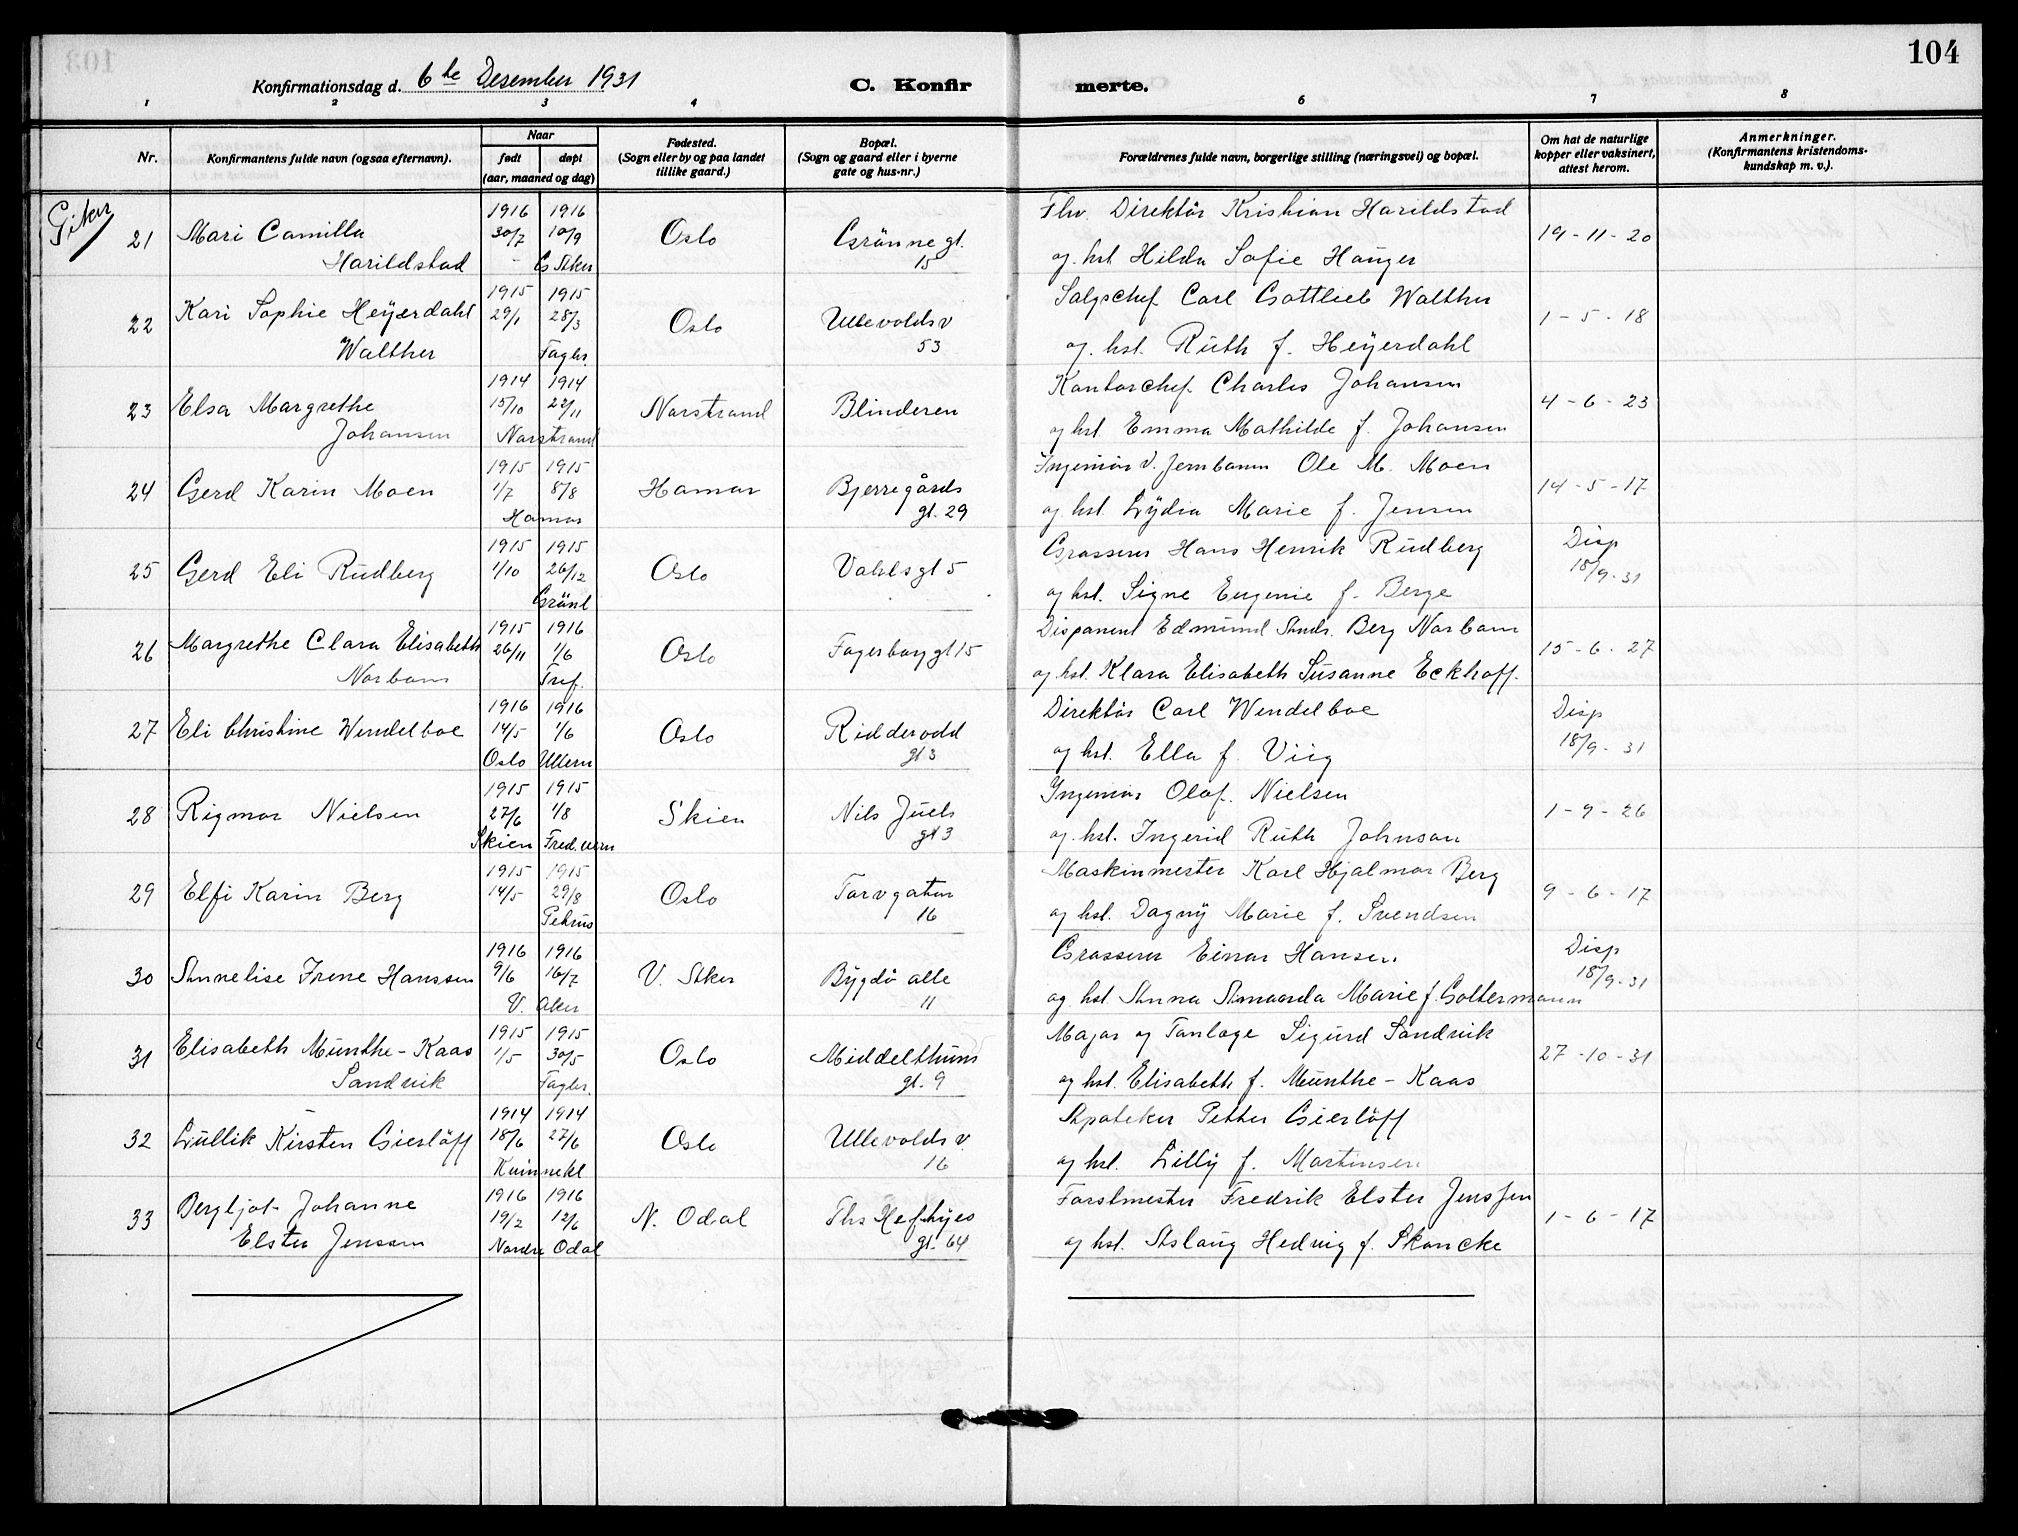 104
Konfirmationsdag d. 6te Desember 1931
C. Konfir
merte.
1 2 3 4 6 7 8
Nr.
Konfirmantens fulde navn (ogsaa efternavn).
Naar
født
døpt
(aar, maaned og dag)
Fødested.
(Sogn eller by og paa landet
tillike gaard.)
Bopæl.
(Sogn og gaard eller i byerne
gate og hus-nr.)
Forældrenes fulde navn, borgerlige stilling (næringsvei) og bopæl.
Om hat de naturlige
kopper eller vaksinert,
attest herom.
Anmerkninger.
(Konfirmantens kristendoms-
kundskap m. v.).
Piker
1916 1916 Fhv. Direktör Kristian Harildstad
21 Mari Camilla 30/7 10/9 Oslo Grönnegt. 19-11-20
Harildstad G Aker 15 og hst Hilda Sofie Hauger
1915 1915 Salgschef Carl Gottlieb Walther
22 Kari Sophie Heyerdahl 29/1 28/3 Oslo Ullevoldsv 1-5-18
Walther Fagbr. 53 og. hst. Ruth f. Heyerdahl
1914 1914 Kontorchef Charles Johansen
23 Elsa Margrethe 15/10 22/11 Norstrand Blinderen 4-6-23
Johansen Norstrand og hst. Emma Mathilde f. Johansen
1915 1915 Ingeniör v. Jernbanen Ole M. Moen
24 Gerd Karin Moen 1/7 8/8 Hamar Bjerregårds 14-5-17
Hamar gt. 29 og hst. Lydia Marie f. Jensen
1915 1915 Grosserer Hans Henrik Rudberg Disp
25 Gerd Eli Rudberg 1/10 26/12 Oslo Vahlsgt 5 18/9-31
Grönl og hst. Signe Eugenie f. Berge
1915 1916 Disponent Edmund Andr. Berg Norbom
26 Margrethe Clara Elisabeth 26/11 1/6 Oslo Fagerborggt 15 15-6-27
Norbom Tref. og hst. Klara Elisabeth Susanne Eckhoff.
1916 1916 Direktör Carl Wendelboe Disp
27 Eli Christine Wendelboe 14/5 1/6 Oslo Riddervold 18/9-31
Oslo Ullern gt 3 og hst. Ella f. Viig
1915 1915 Ingeniör Olaf Nielsen
28 Rigmor Nielsen 27/6 1/8 Skien Nils Juels 1-9-26
Skien Fred.vern gt 3 og hst. Ingerid Ruth Johnson
1915 1915 Maskinmester Karl Hjalmar Berg
29 Elfi Karin Berg 14/5 29/8 Oslo Torvgaten 9-6-17
Petrus 16 og hst. Dagny Marie f. Svendsen
1916 1916 Grosserer Einar Hansen Disp
30 Annelise Irene Hanssen 9/6 16/7 V. Aker Bygdö alle 18/9-31
V. Aker 11 og hst. Anna Amanda Marie f. Goltermann
1915 1915 Major og Tanlæge Sigurd Sandvik
31 Elisabeth Munthe-Kaas 1/5 30/5 Oslo Middelthuns 27-10-31
Sandvik Fagbr. gt. 9 og hst. Elisabeth f. Munthe-Kaas
1914 1914 Apoteker Petter Gierlöff
32 Lullik Kirsten Gierlöff 18/6 27/6 Oslo Ullevoldsv.
Kvinnekl 16 og hst. Lilly f. Martinsen
1916 1916 Forstmester Fredrik Elster Jenssen
33 Bergljot Johanne 19/2 12/6 N. Odal Ths Heftyes 1-6-17
Elster Jenssen Nordre Odal gt. 64 og hst. Aslaug Hedvig f. Skancke